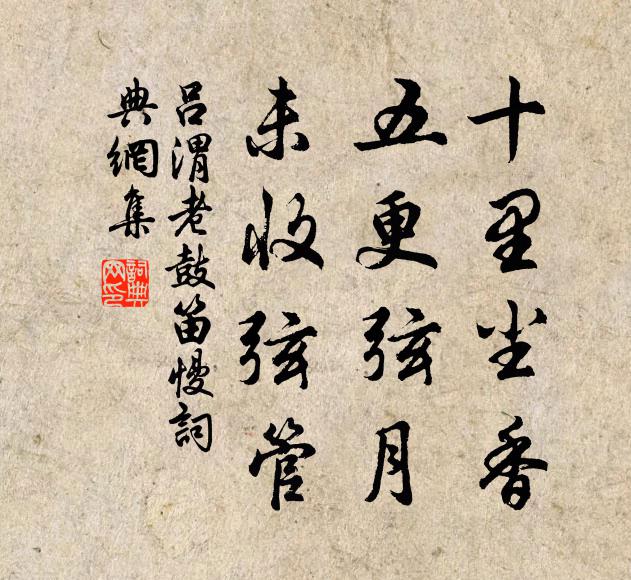 十里尘香
五更弦月
未收弦管
吕渭老鼓笛慢詞
典網集
詞典
网印